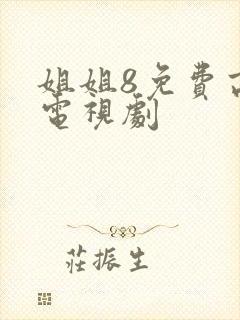 姐姐8免費
電視劇
莊振生